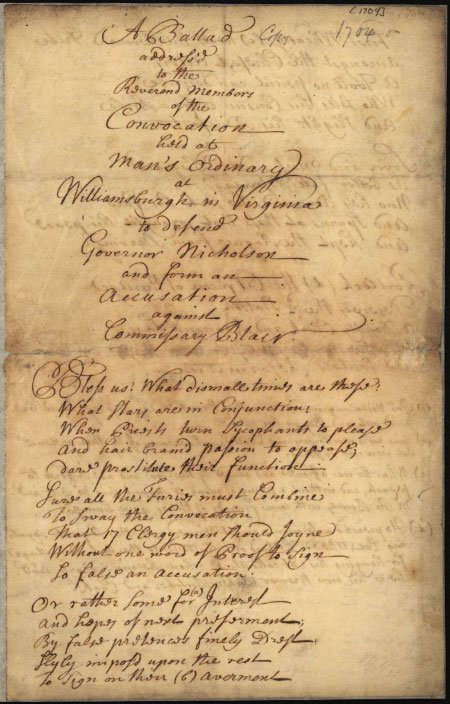 [1704]
A Ballad Copy 1704
address'd
to the
Reverend Members
of the
Convocation
held at
Man's Ordinary
at
Williamsburgh, in Virginia
to defend
Governor Nicholson
and form an
Accusation
against
Commissary Blair.
Bless us! What dismall times are these;
What Stars are in Conjunction;
When Priests turn Sycophants to please
And hair brand passion to appease;
dare prostitute their function
Sure all the Furies must Combine
to Sway the Convocation
That 17 Clergy men should Joyne
Without one word of Proof to Sign
So false an Accusation.
Or rather some for (a) Interest
and hopes of next preferment;
By false pretences finely Drest
Slyly impos'd upon the rest
to Sign on their (b) averment